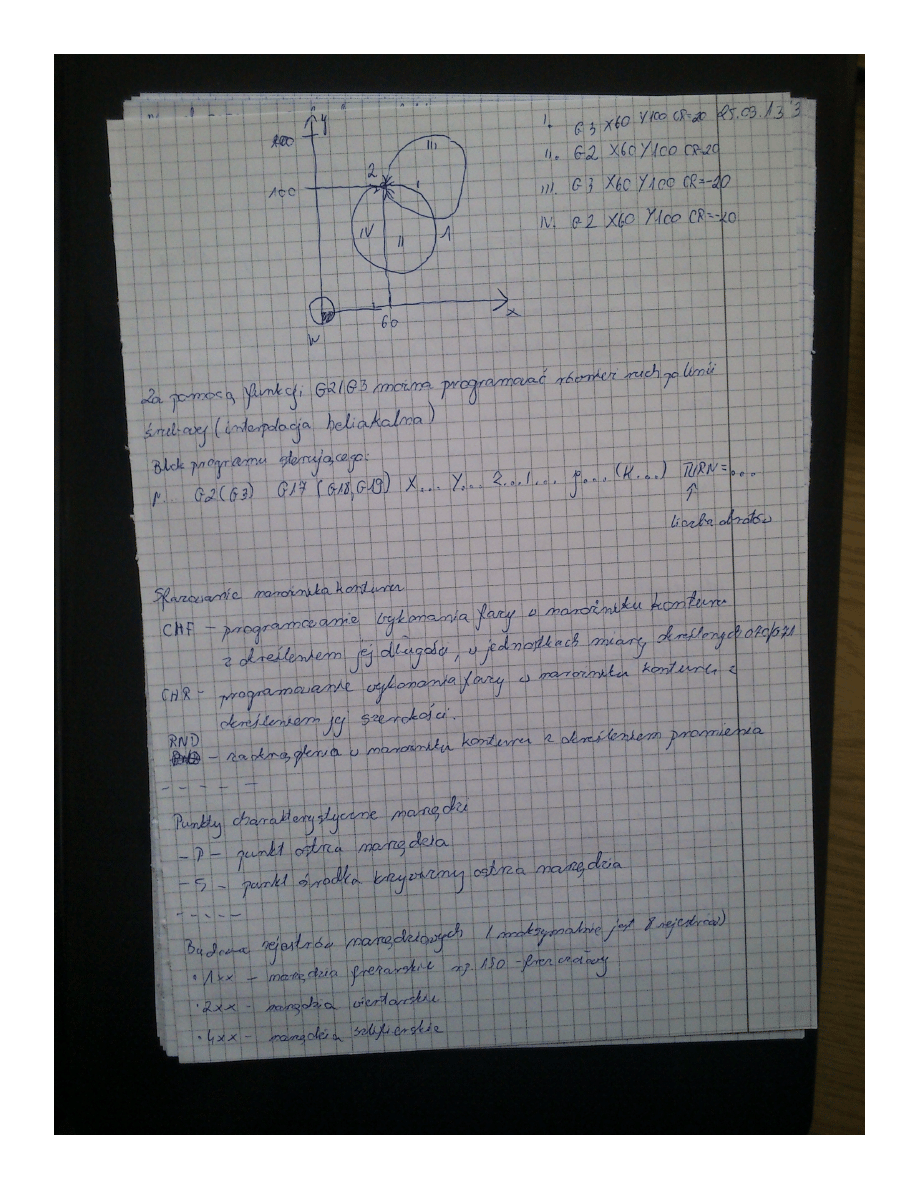 25.03.13 3
I. G3 X60 Y100 CR=20
II. G2 X60 Y100 CR=20
III. G3 X60 Y100 CR=-20
IV. G2 X60 Y100 CR=-20
y
III
2
100
I
IV
II
1
60
x
W
Za pomocą funkcji G2/G3 można programować również ruch po linii
śrubowej (interpolacja heliakalna)
Blok programu sterującego:
N... G2(G3) G17 (G18,G19) X... Y... Z...I... J...(K...) TURN=...
↑
liczba obrotów
Sfazowanie narożnika konturu
CHF - programowanie wykonania fazy w narożniku konturu
z określeniem jej długości, w jednostkach miary określonych G70/G71
CHR - programowanie wykonania fazy w narożniku konturu z
określeniem jej szerokości.
RND
- zaokrąglenia w narożniku konturu z określeniem promienia
- - - - -
Punkty charakterystyczne narzędzi
- P - punkt ostrza narzędzia
- S - punkt środka krzywizny ostrza narzędzia
- - - - -
Budowa rejestrów narzędziowych (maksymalnie jest 8 rejestrów)
· 1xx - narzędzia frezarskie np. 150 - frez
· 2xx - narzędzia wiertarskie
· 4xx - narzędzia szlifierskie